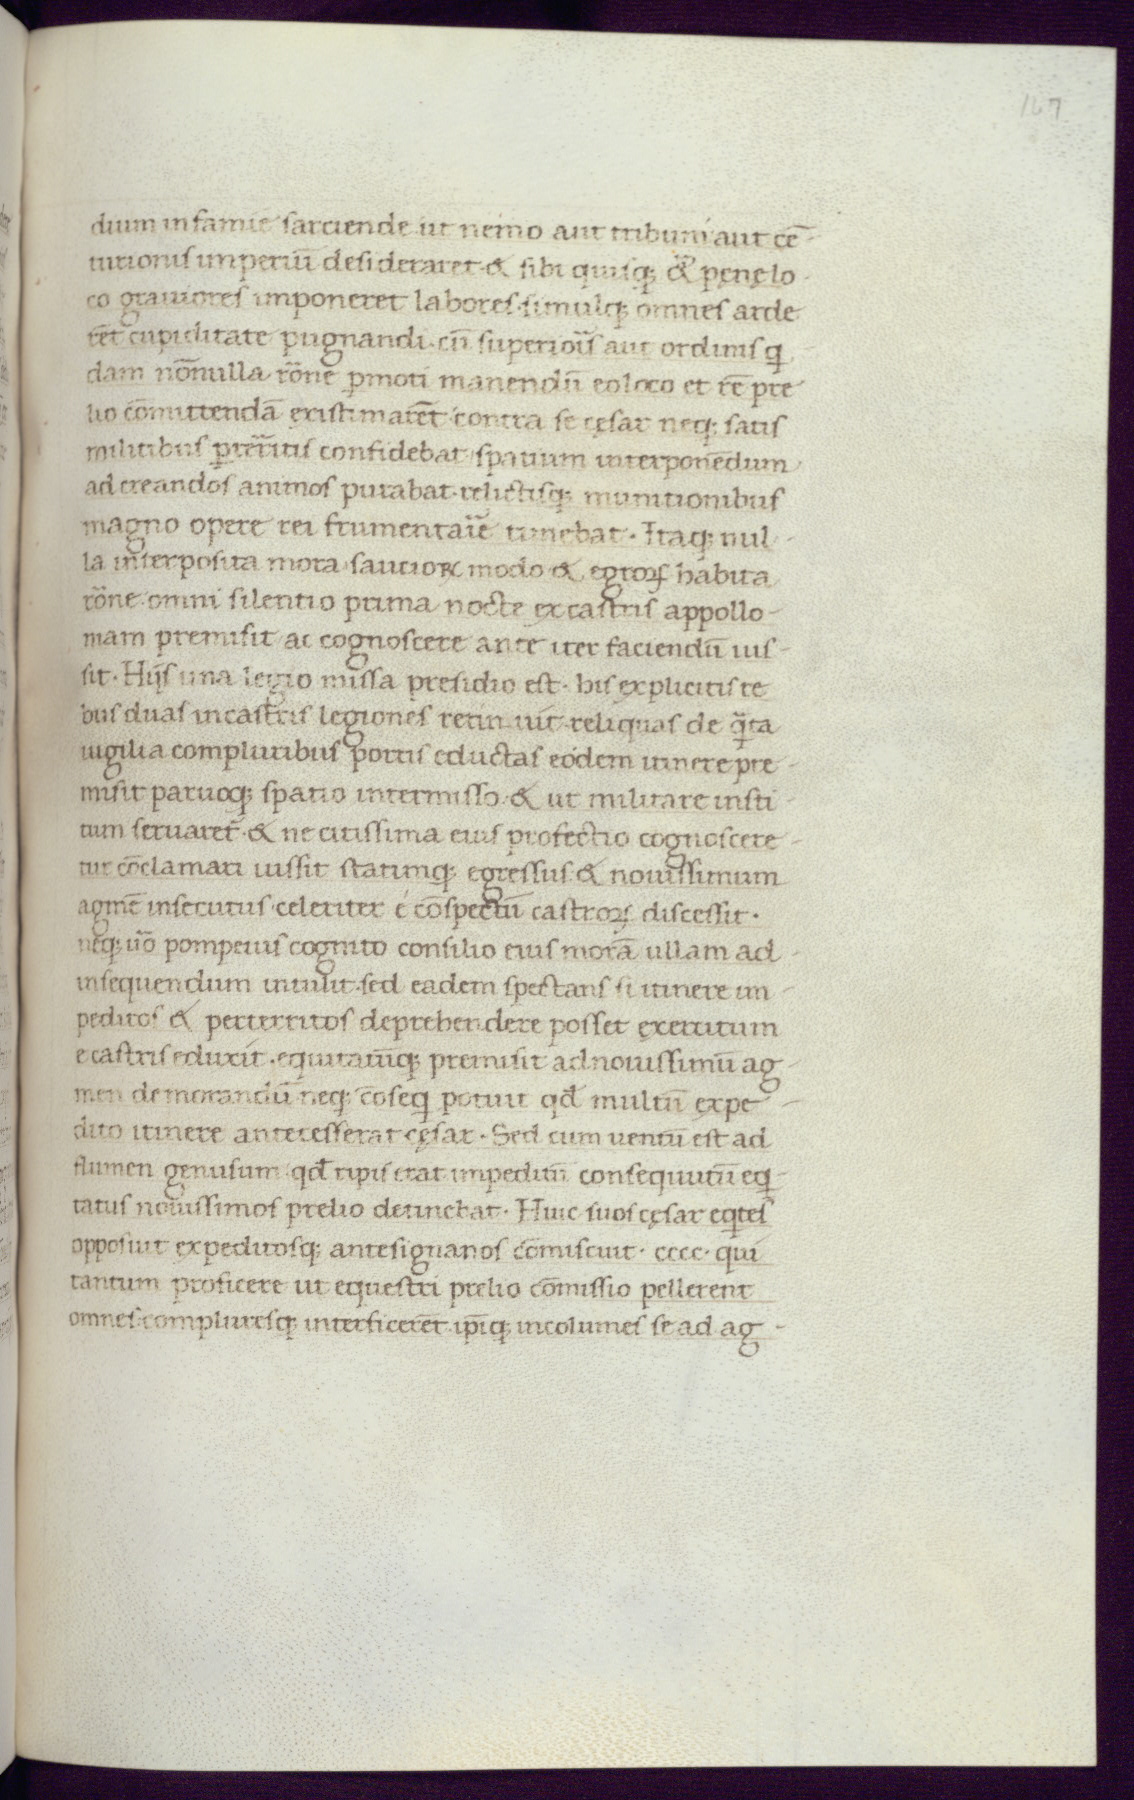 167
dium infamie sarciende ut nemo aut tribuni aut cē-
turionis imperiū desideraret · & sibi quisq; & pęnę lo-
co grauiores imponeret labores · simulq; omnes arde
rēt cupiditate pugnandi · cū superioris aut ordinis q
dam nōnulla rōne pmoti manendū eo loco et rē pre
lio cōmittendā existimarēt contra se cęsar neq; satis
militibus preritis confidebat spatium interponēdum
ad creandos animos putabat · relictisq; munitionibus
magno opere rei frumentarie timebat · Itaq; nul-
la interposita mora sauciorꝝ modo & egrorꝝ habita
rōne omni silentio prima nocte ex castris appollo-
niam premisit ac cognoscere ante iter faciendū ius-
sit · Hijs una legio missa presidio est · his explicitis re
bus duas in castris legiones retinuit reliquas de qrta
uigilia compluribus portis eductas eodem itinere pre-
misit paruoq; spatio intermisso · & ut militare insti-
tum seruaret · & ne citissima eius profectio cognoscere-
tur cōclamari iussit statimq; egressus · & nouissimum
agmē insecutus celeriter é cōspectū castrorꝝ discessit ·
neq; uo pompeius cognito consilio eius morā ullam ad-
insequendum intulit · sed eadem spectans si itinere im-
peditos & perterritos deprehendere posset exercitum
e castris eduxit · equitatūq; premisit ad nouissimū ag-
men demorandū neq; cōseq potuit qđ multū expe-
dito itinere antecesserat cęsar · Sed cum uentū est ad
flumen genusum qđ ripis erat impeditū consequutū eq-
tatus nouissimos prelio detinebat · Huic suos cęsar eqtes
opposuit expeditosq; antesignanos cōmiscuit · cccc · qui
tantum proficere ut equestri prelio cōmissio pellerent
omnes · compluresq; interficerēt ipiq; incolumes se ad ag-